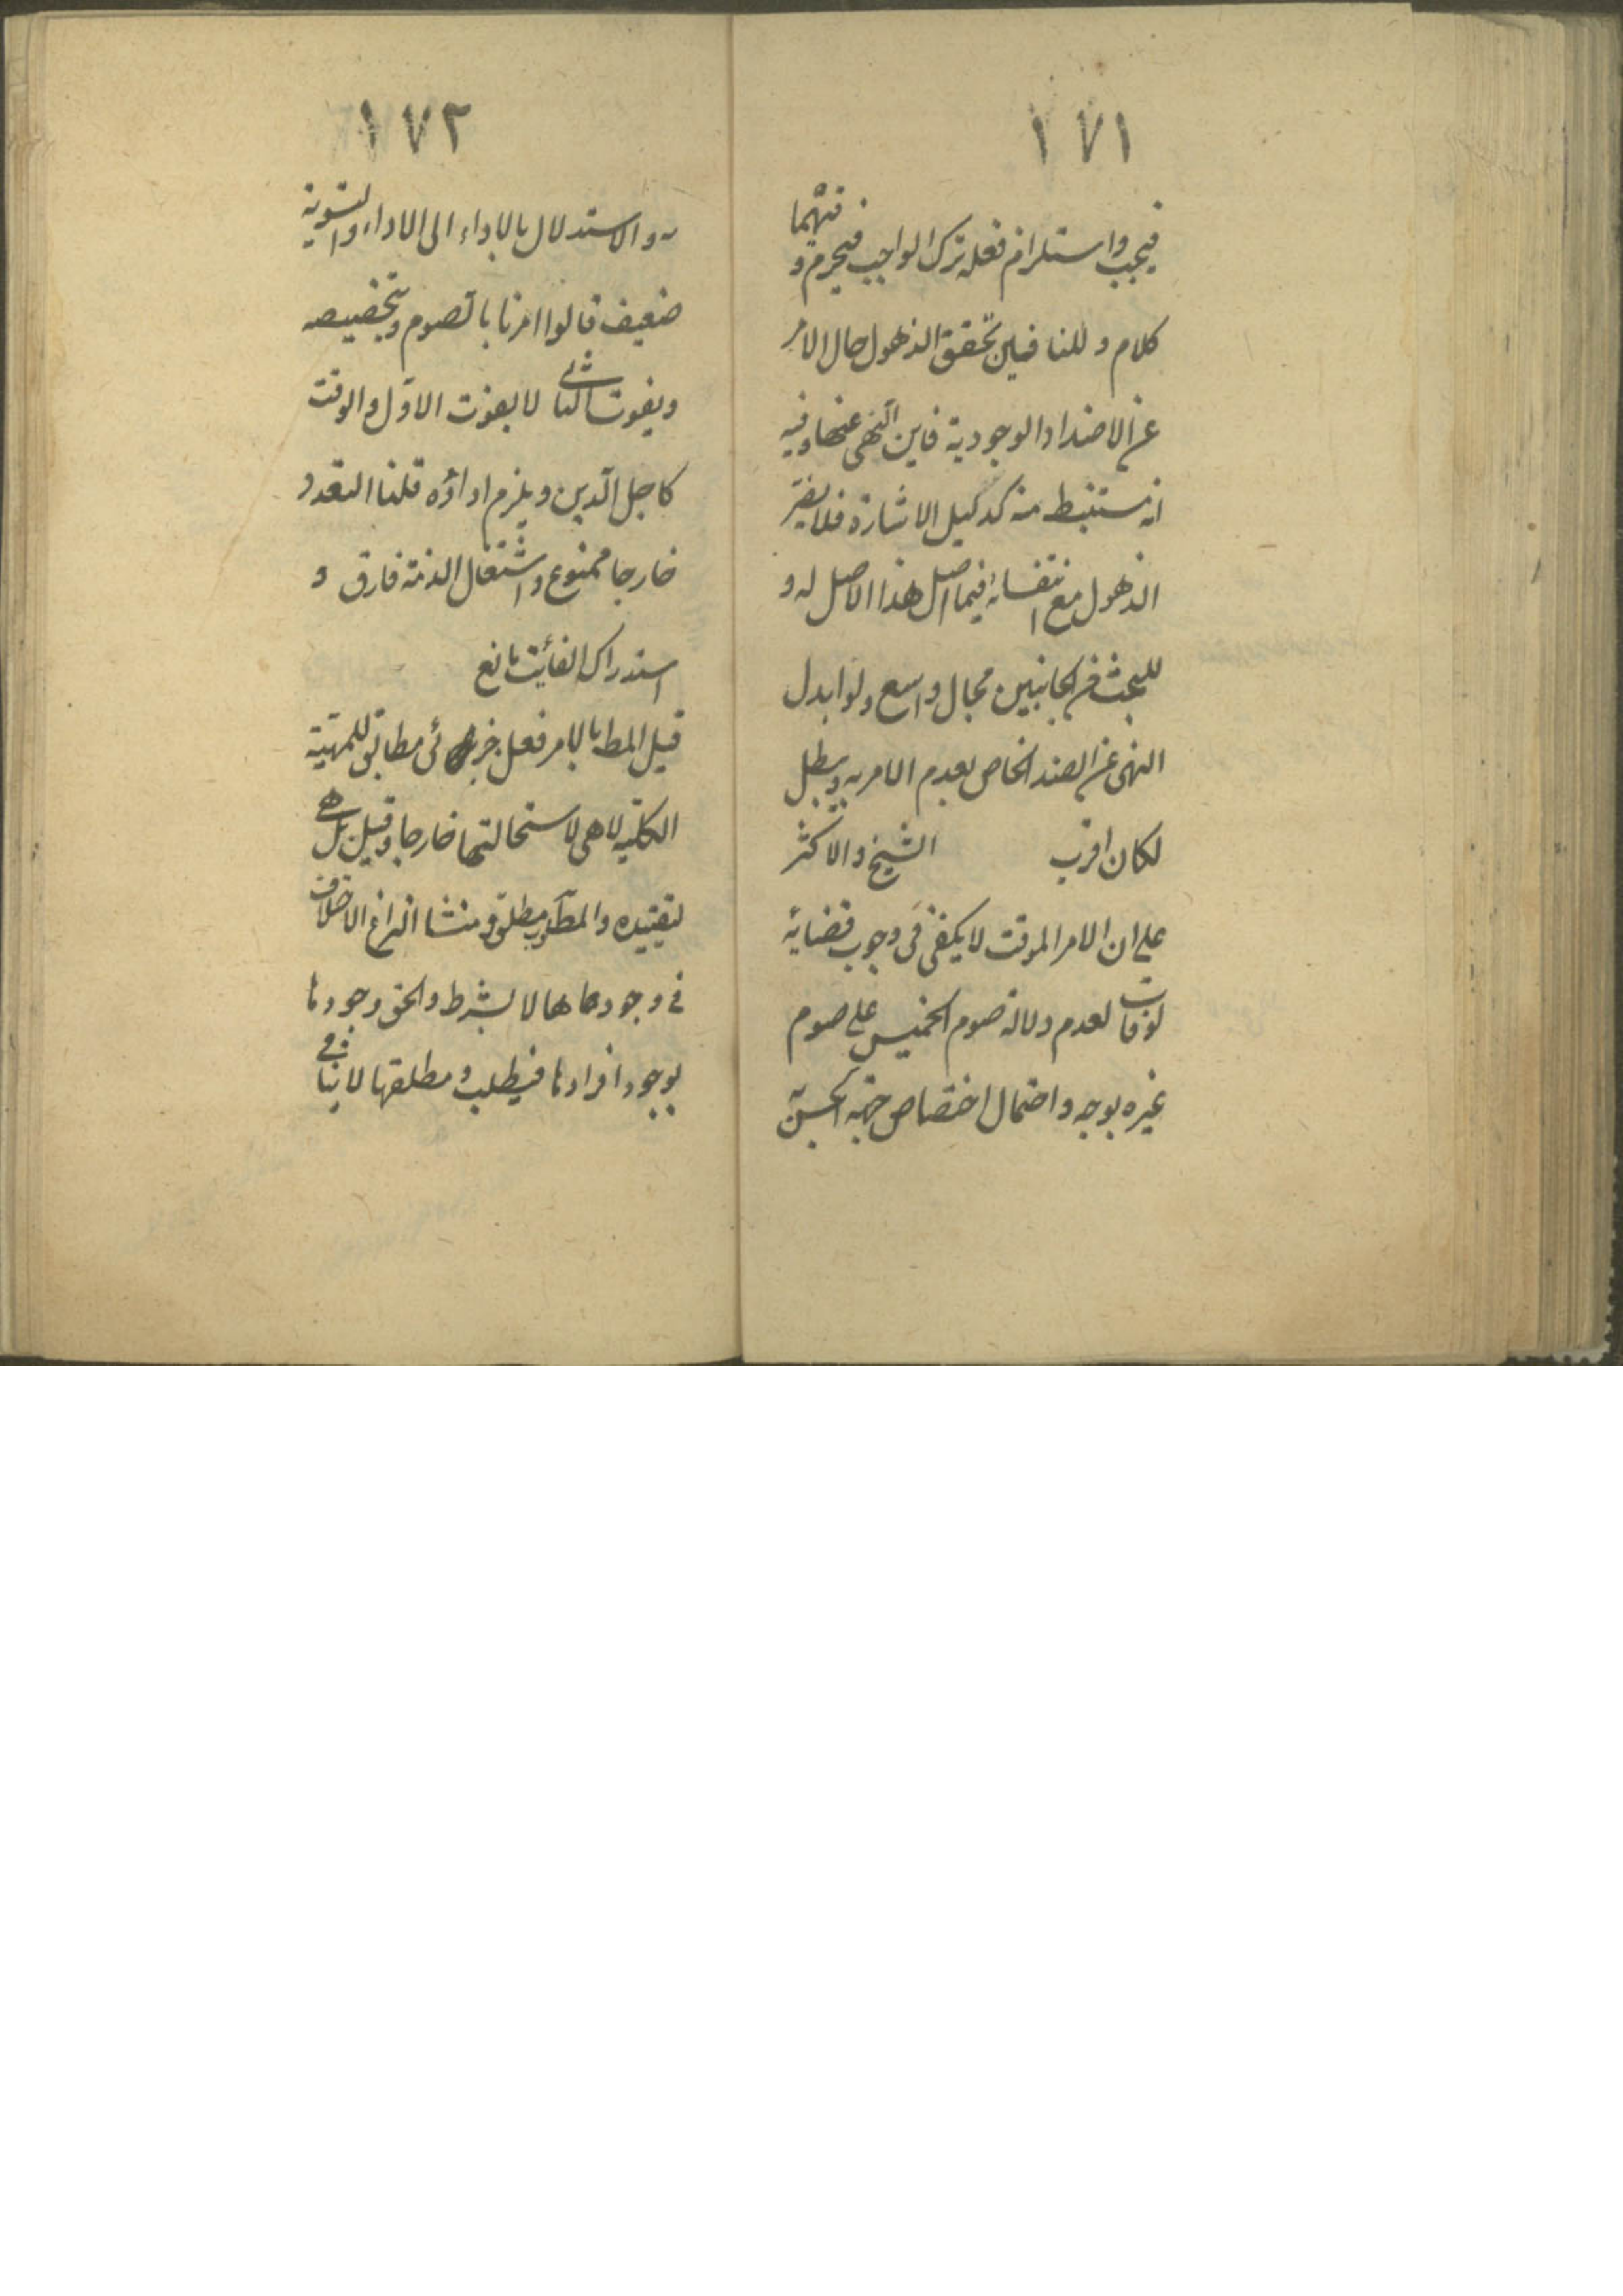 ١٧١
فيجب واستلزام فعله ترك الواجب فيحرم وفيهما
كلام وللنافين تحقق الذهول حال الامر
عن الاضداد الوجودية فاين النهى عنها وفيه
انه مستنبط منه كدليل الاشارة فلا يضر
الذهول مع انتفائه فيما اصل هذا الاصل له و
للبحث من الجانبين مجال واسع ولو ابدل
النهى عن الضد الخاص بعدم الامر به ويبطل
لكان اقرب الشيخ والاكثر
على ان الامر الموقت لا يكفى فى وجوب قضائه
لوفات لعدم دلالة صوم الخميس على صوم
غيره بوجه واحتمال اختصاص جهة الحسن
١٧٢
به والاستدلال بالاداء الى الاداء والتسوية
ضعيف قالوا امرنا بالصوم وبتخصيصه
ويفوت الثانى لا بفوت الاول والوقت
كاجل الدين ويلزم اداؤه قلنا التعدد
خارجا ممنوع واشتغال الذمة فارق و
استدراك الفائت مانع
قيل المط بالامر فعل جزئى مطابق للمهية
الكلية لا هى لاستحالتها خارجا وقيل بل هى
لتقييده والمطلوب مطلق ومنشا النزاع الاختلاف
فى وجودها لا بشرط والحق وجودها
بوجود افرادها فيطلب ومطلقها لا ينافى